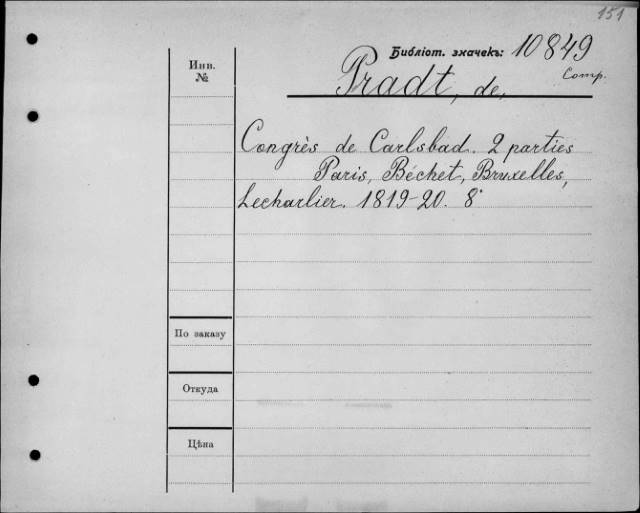 151
Библіот. значекъ: 10849
Comp.
Инв.
№
Pradt, de,
Congrès de Carlsbad. 2 parties
Paris, Béchet, Bruxelles,
Lecharlier. 1819-20. 8°
По заказу
Откуда
Цѣна